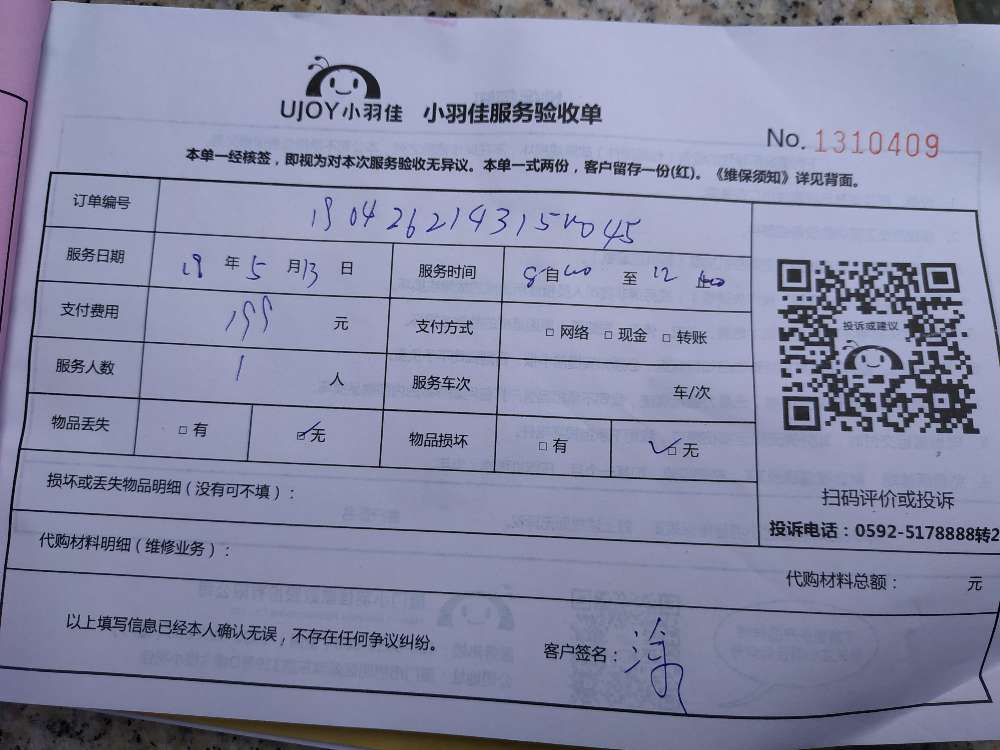 UJOY小羽佳 小羽佳服务验收单
No. 1310409
本单一经核签，即视为对本次服务验收无异议。本单一式两份，客户留存一份(红)。《维保须知》详见背面。
订单编号
服务日期 19 年 5 月 13 日 服务时间 8 自 00 至 12
支付费用 199 元 支付方式 □ 网络 □ 现金 □ 转账
投诉或建议
服务人数 1 人 服务车次 车/次
物品丢失 □ 有 ☑ 无 物品损坏 □ 有 ☑ 无
损坏或丢失物品明细（没有可不填）：
扫码评价或投诉
投诉电话：0592-5178888转2
代购材料明细（维修业务）：
代购材料总额： 元
以上填写信息已经本人确认无误，不存在任何争议纠纷。
客户签名：